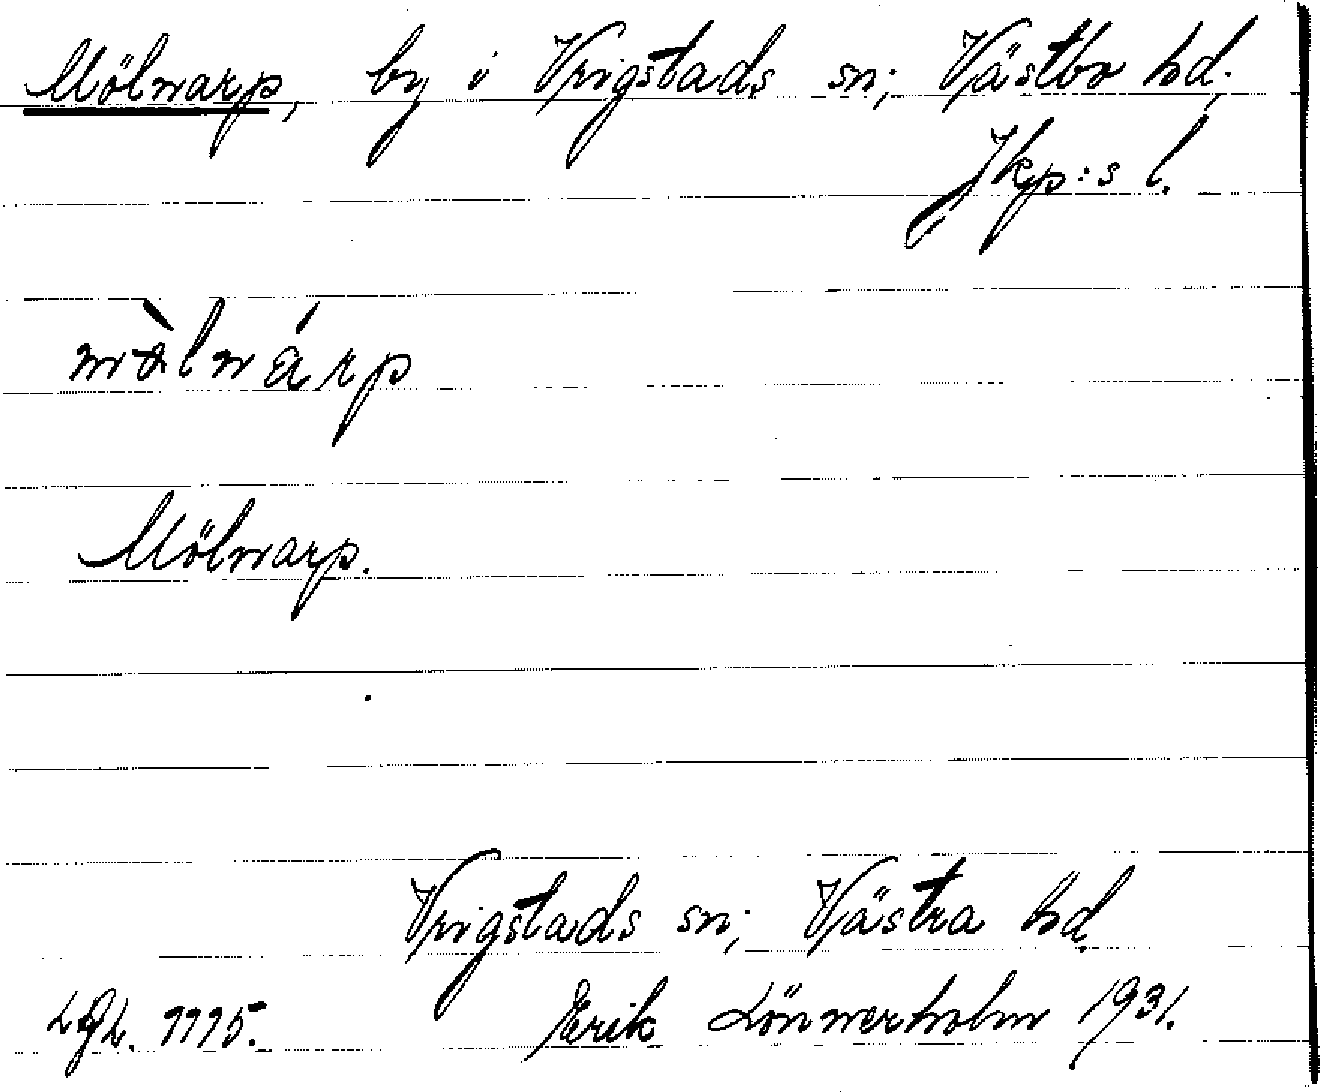 Mölwarp, by i Vrigstads sn; Västbo hd.
Jkp:s l.
mölwàrp
Mölwarp.
Vrigstads sn; Västra hd.
Erik Lönnerholm 1931.